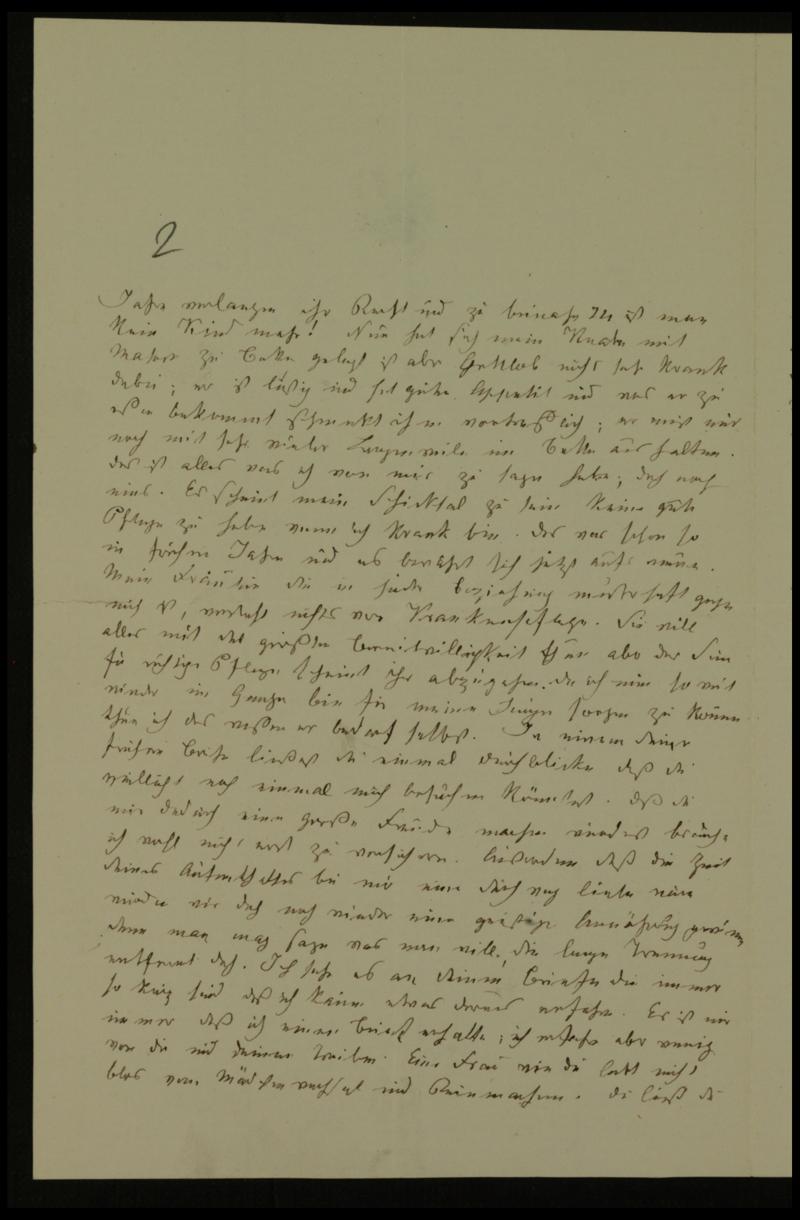 2
Jahre verlangen ihr Recht und zu beinahe 74 ist man
kein Kind mehr! Nun hat sich mein Knabe mit
Masern zu Bette gelegt ist aber Gottlob nicht sehr krank
dabei; er ist lustig und hat guten Appetit und was er zu
essen bekommt schmeckt ihm vortrefflich; er muß nur
noch mit sehr vieler Langenweile im Bette aushalten.
das ist alles was ich von mir zu sagen habe; doch noch
eins. Es scheint mein Schicksal zu sein keine gute
Pflege zu haben wenn ich krank bin. das war schon so
in frühern Jahren und es bewährt sich jetzt aufs neue.
Mein Fräulein die in jeder Beziehung musterhaft gegen
mich ist, versteht nichts von Krankenpflege. Sie will
alles mit der größten Bereitwilligkeit thun aber der Sinn
für richtige Pflege scheint ihr abzugehen. da ich nun so weit
wieder im Gange bin für meinen Jungen sorgen zu können
thue ich das wessen er bedarf selbst. In einem deiner
frühern Briefe ließest du einmal durchblicken daß du
vielleicht noch einmal mich besuchen könntest. daß du
mir dadurch eine große Freude machen würdest brauche
ich wohl nicht erst zu versichern. Außerdem daß die Zeit
deines Aufenthaltes bei mir eine durchweg liebe wäre
würden wir doch auch wieder eine geistige Annäherung gewinnen
denn man mag sagen was man will, die lange Trennung
entfremt doch. Ich sehe es an deinen Briefen die immer
so kurz sind daß ich kaum etwas daraus erfahre. Es ist mir
immer daß ich einen Brief erhalte; ich erfahre aber wenig
von dir und deinem Treiben. Eine Frau wie du lebt nicht
blos vom Mädchenwechsel und Reinmachen. du ließt du